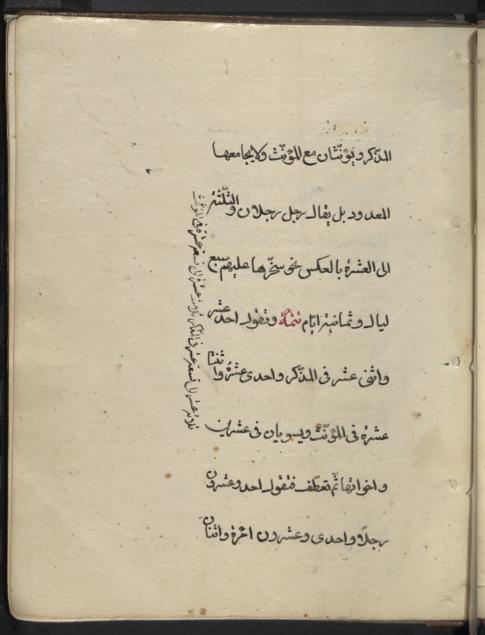 المذكر ويؤنثان مع المؤنث ولا يجامعها
المعدود بل يقال رجل رجلان والثلثة
الى العشرة بالعكس نحو سخرها عليهم سبع
ليال وثمانية ايام تتمة وتقول احد عشر
واثنى عشر فى المذكر واحدى عشرة واثنتا
عشرة فى المؤنث ويسويان فى عشرين
واخواتها ثم تعطف فتقول احد وعشرون
رجلا واحدى وعشرون امرة واثنان
ثلاثة عشر الى تسعة عشر فى المذكر ثلاث عشرة الى تسع عشرة فى المؤنث